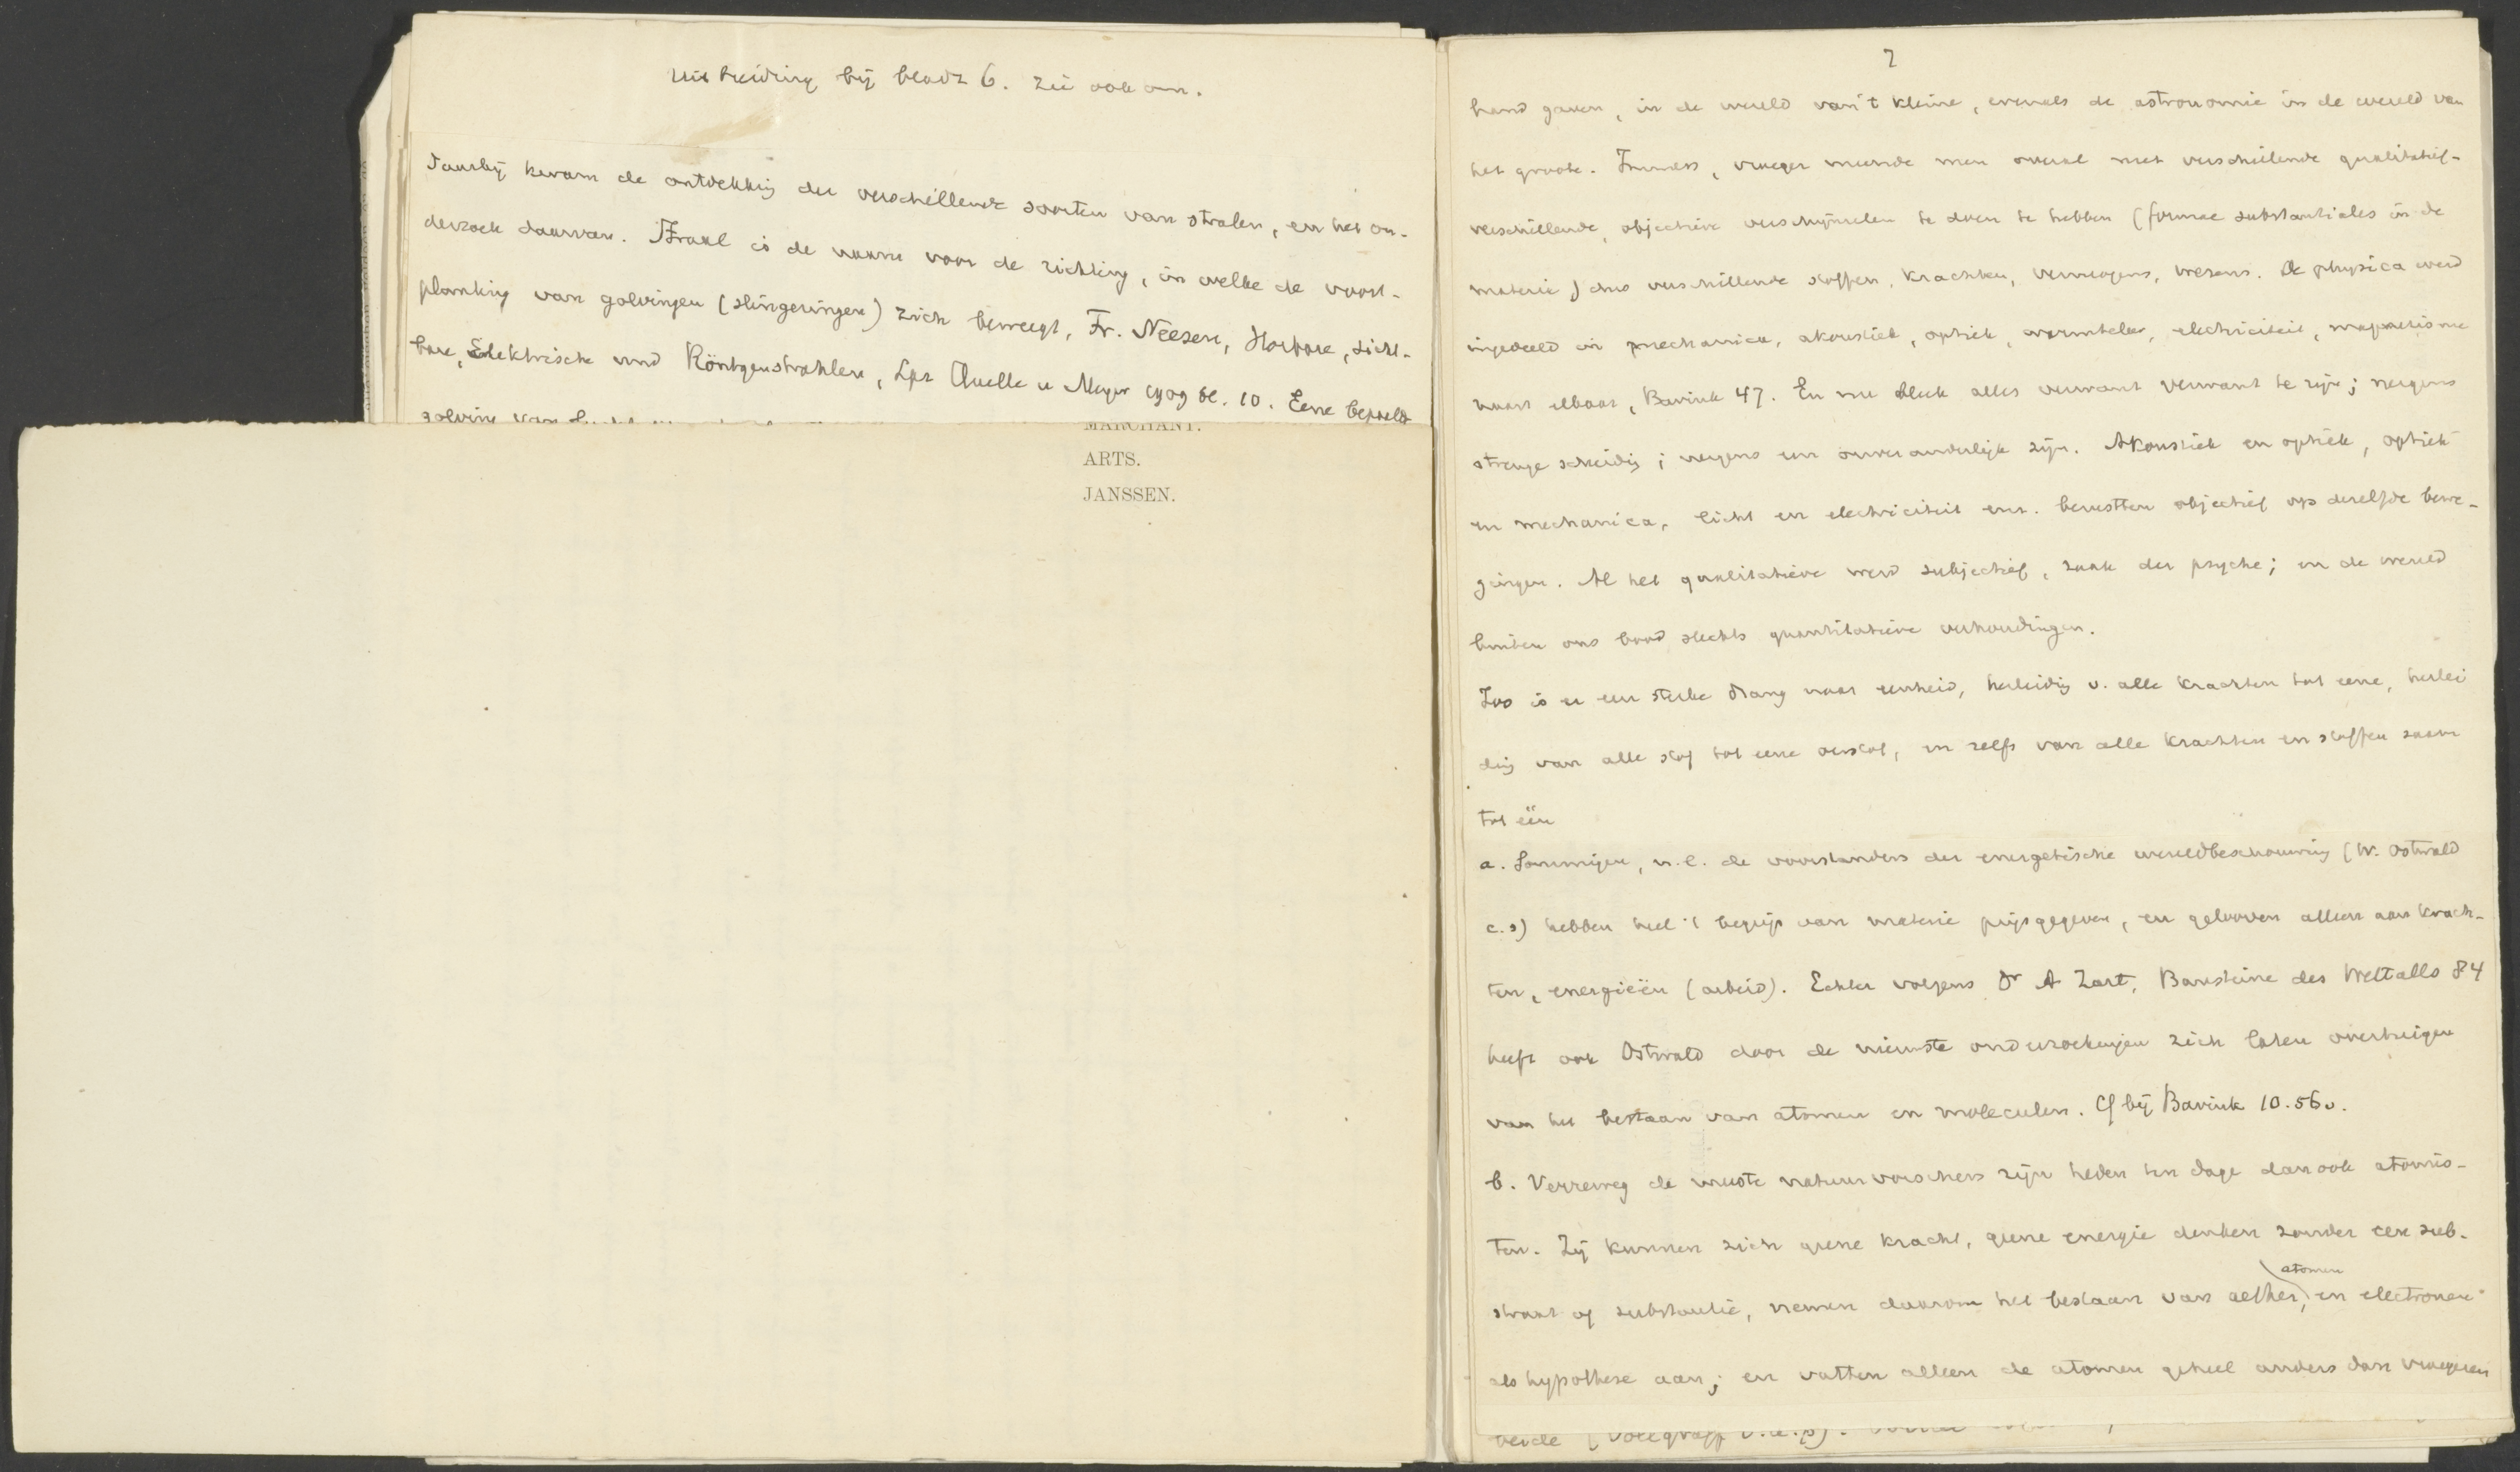 Uitbreiding bij bladz 6. Zie ook om.
Daarbij kwam de ontdekking der verschillende soorten van stralen, en het on-
derzoek daarvan. Straal is de naam voor de richting, in welke de voort-
planting van golvingen (slingeringen) zich beweegt, Fr. Neesen, Horbare, Sicht-
bare, Elektrische und Röntgenstrahlen, Lpz Quelle u Meyer 1909 bl. 10. Eene bepaalde
golving van
MARCHANT.
ARTS.
JANSSEN.
7
hand gaven, in de wereld van 't kleine, evenals de astronomie in de wereld van
het groote. Immers, vroeger meende men overal met verschillende qualitatief-
verschillende, objectieve verschijnselen te doen te hebben (formae substantiales in de
materie) dus verschillende stoffen, krachten, vermogens, wezens. De physica werd
ingedeeld in mechanica, akoustiek, optiek, warmteleer, electriciteit, magnetisme
naast elkaar, Bavink 47. En nu bleek alles verwant verwant te zijn; nergens
strenge scheiding; nergens een onveranderlijk zijn. Akoustiek en optiek, optiek
en mechanica, licht en electriciteit enz. berustten objectief op dezelfde bewe-
gingen. Al het qualitatieve werd subjectief, zaak der psyche; en de wereld
buiten ons bood slechts quantitatieve verhoudingen.
Zoo is er een sterke drang naar eenheid, herleiding v. alle krachten tot eene, herlei
ding van alle stof tot eene oerstof, en zelfs van alle krachten en stoffen saam
tot één
a. Sommigen, n.l. de voorstanders der energetische wereldbeschouwing (W. Ostwald
c.s) hebben heel 't begrip van materie prijsgegeven, en gelooven alleen aan krach-
ten, energieën (arbeid). Echter volgens Dr A Zart, Bausteine des Weltalls 84
heeft ook Ostwald door de nieuwste onderzoekingen zich laten overtuigen
van het bestaan van atomen en moleculen. Cf bij Bavink 10. 56v.
b. Verreweg de meeste natuurvorschers zijn heden ten dage dan ook atomis-
ten. Zij kunnen zich geene kracht, geene energie denken zonder een sub-
straat of substantie, nemen daarom het bestaan van aether, atomen en electronen
als hypothese aan; en vatten alleen de atomen geheel anders dan vroeger
beide